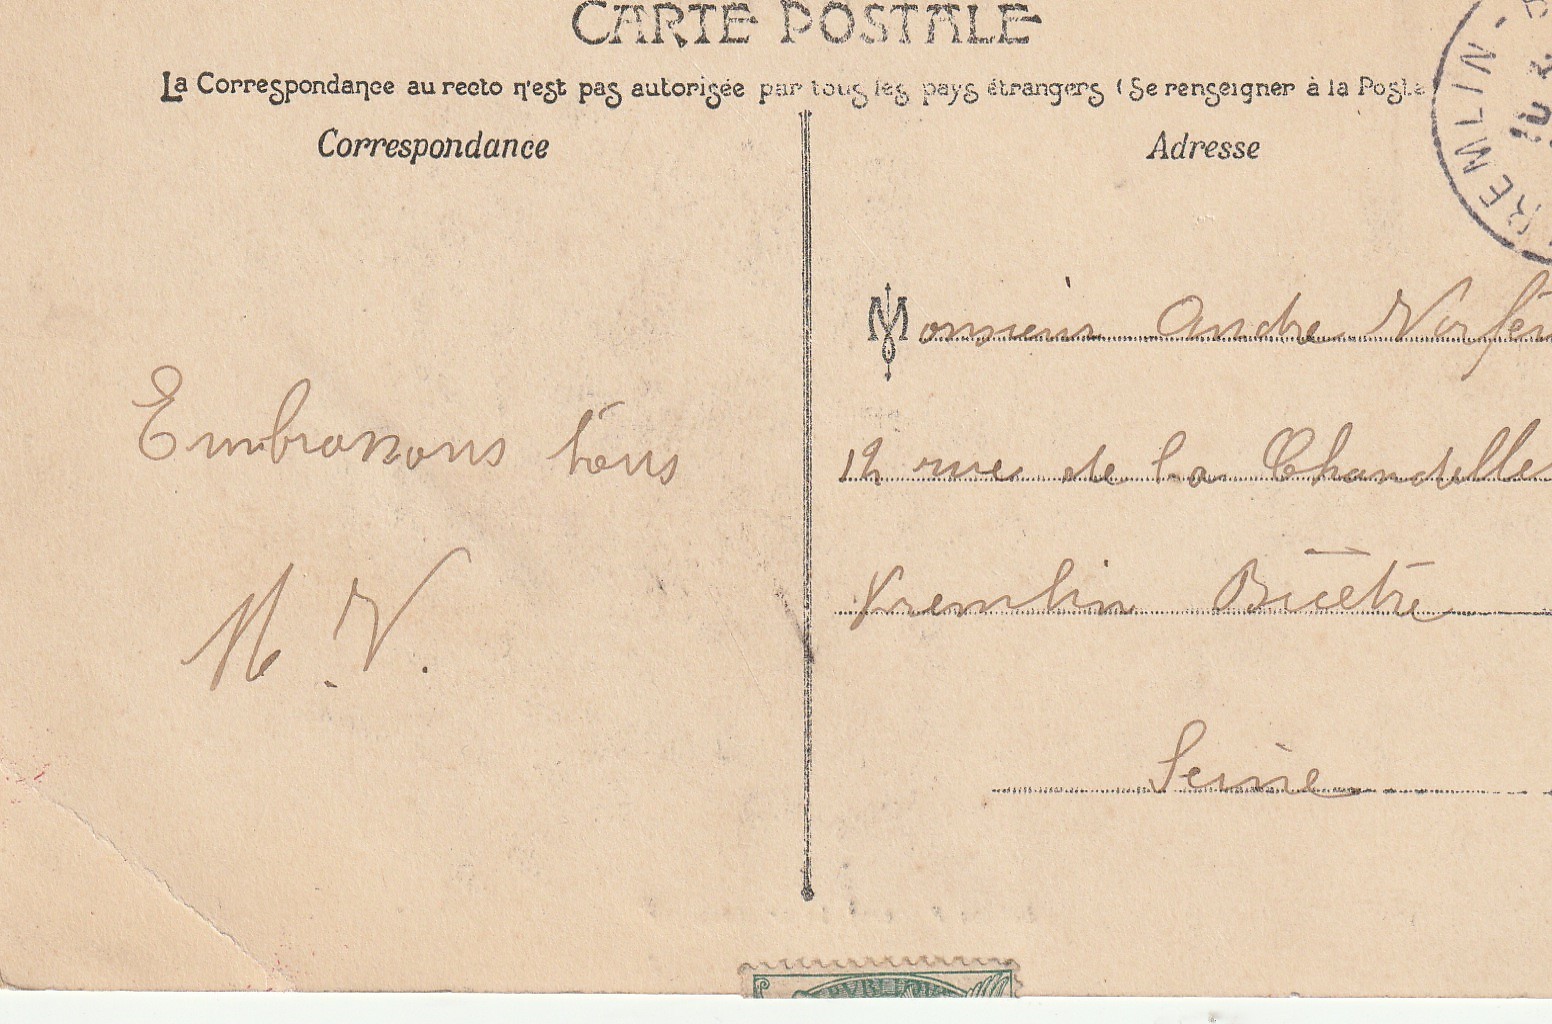 CARTE POSTALE
La Correspondance au recto n'est pas autorisée par tous les pays étrangers (Se renseigner à la Poste
Correspondance
Adresse
REMLIN
Monsieur Andre
12 rue de la Chandelles
Kremlin Bicêtre
Seine
Embrassons tous
M. V.